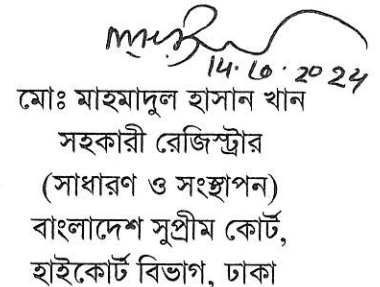 মোঃ মাহমাদুল হাসান খান
সহকারী রেজিস্ট্রার
(সাধারণ ও সংস্থাপন)
বাংলাদেশ সুপ্রীম কোর্ট,
হাইকোর্ট বিভাগ, ঢাকা